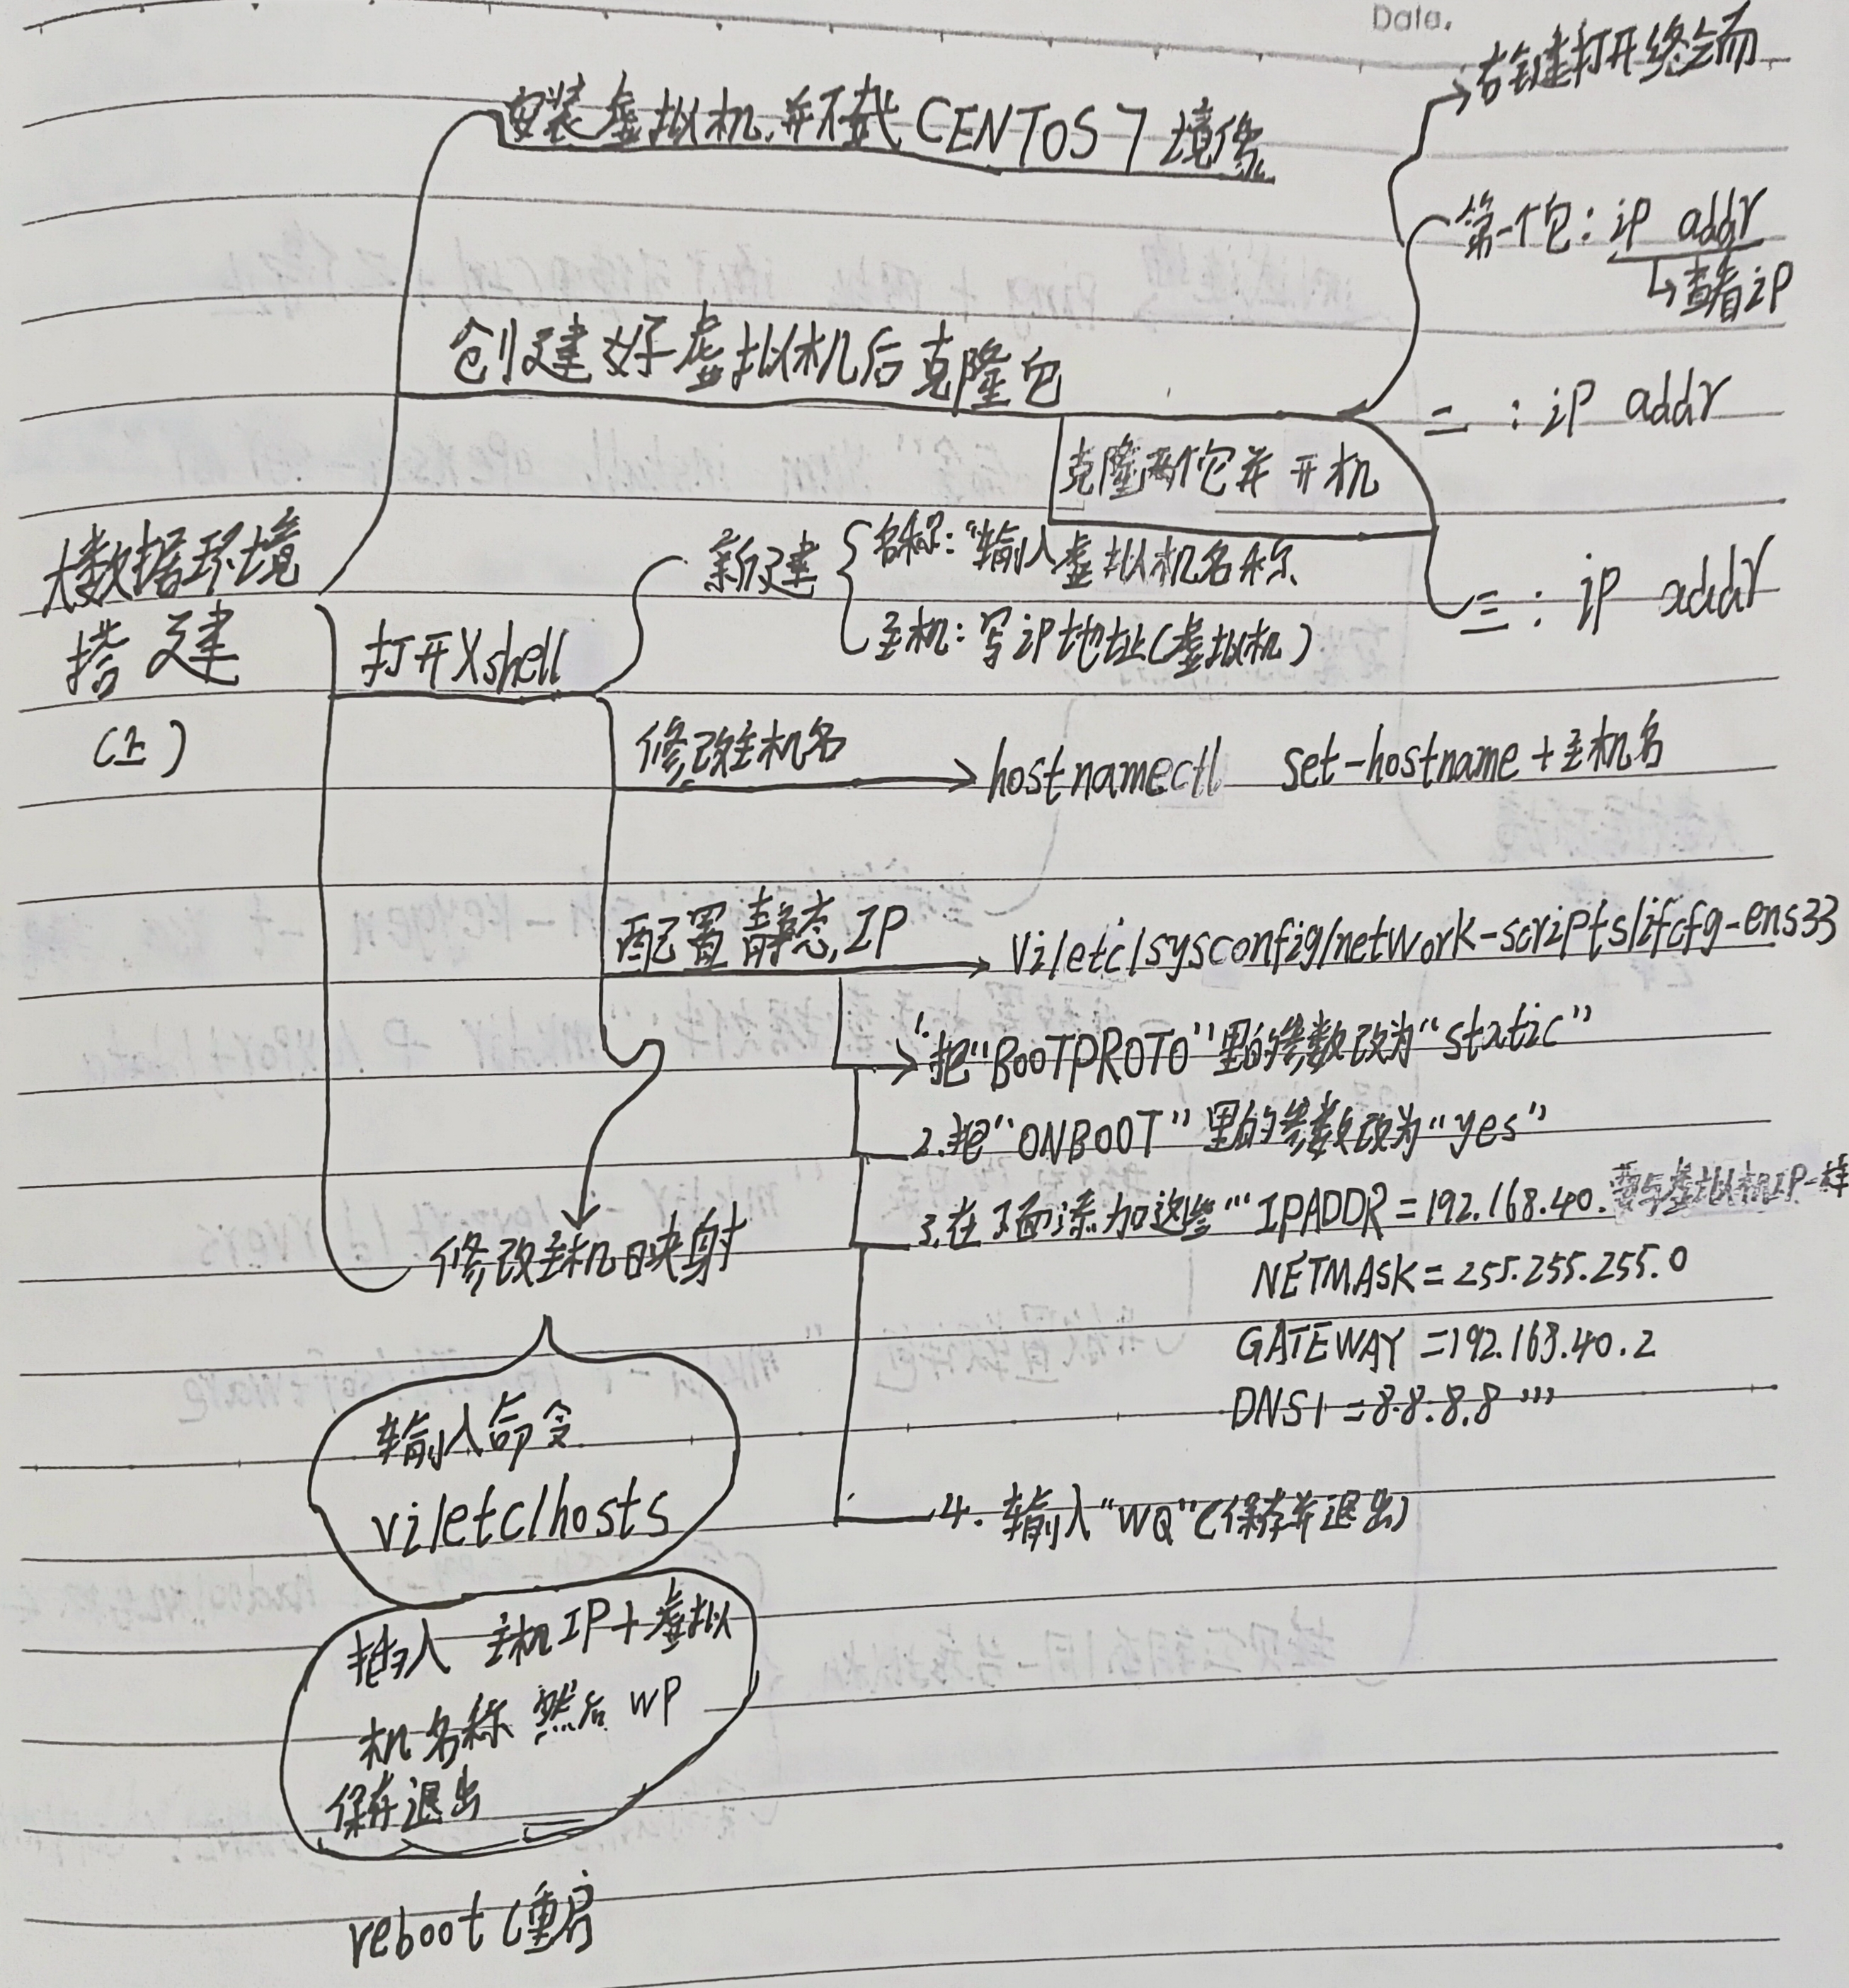 Data.
右键打开终端
安装虚拟机,并下载 CENTOS 7 境像
第一个包: ip addr
↳查看ip
创建好虚拟机后克隆包
二 : ip addr
克隆两个包并开机
大数据环境
搭建
(上)
新建
名称:"输入虚拟机名称
主机:写ip地址(虚拟机)
三 : ip addr
打开Xshell
修改主机名
hostnamectl set-hostname + 主机名
配置静态IP
Vi/etc/sysconfig/network-scripts/ifcfg-ens33
1.把"BOOTPROTO"里的参数改为"static"
2.把"ONBOOT"里的参数改为"yes"
3.在下面添加这些"'IPADDR=192.168.40.要与虚拟机IP一样
NETMASK=255.255.255.0
GATEWAY=192.168.40.2
DNS1=8.8.8.8'"
修改主机映射
输入命令
vi/etc/hosts
4. 输入"WQ"(保存并退出)
插入 主机IP+虚拟
机名称 然后 WP
保存退出
reboot(重启